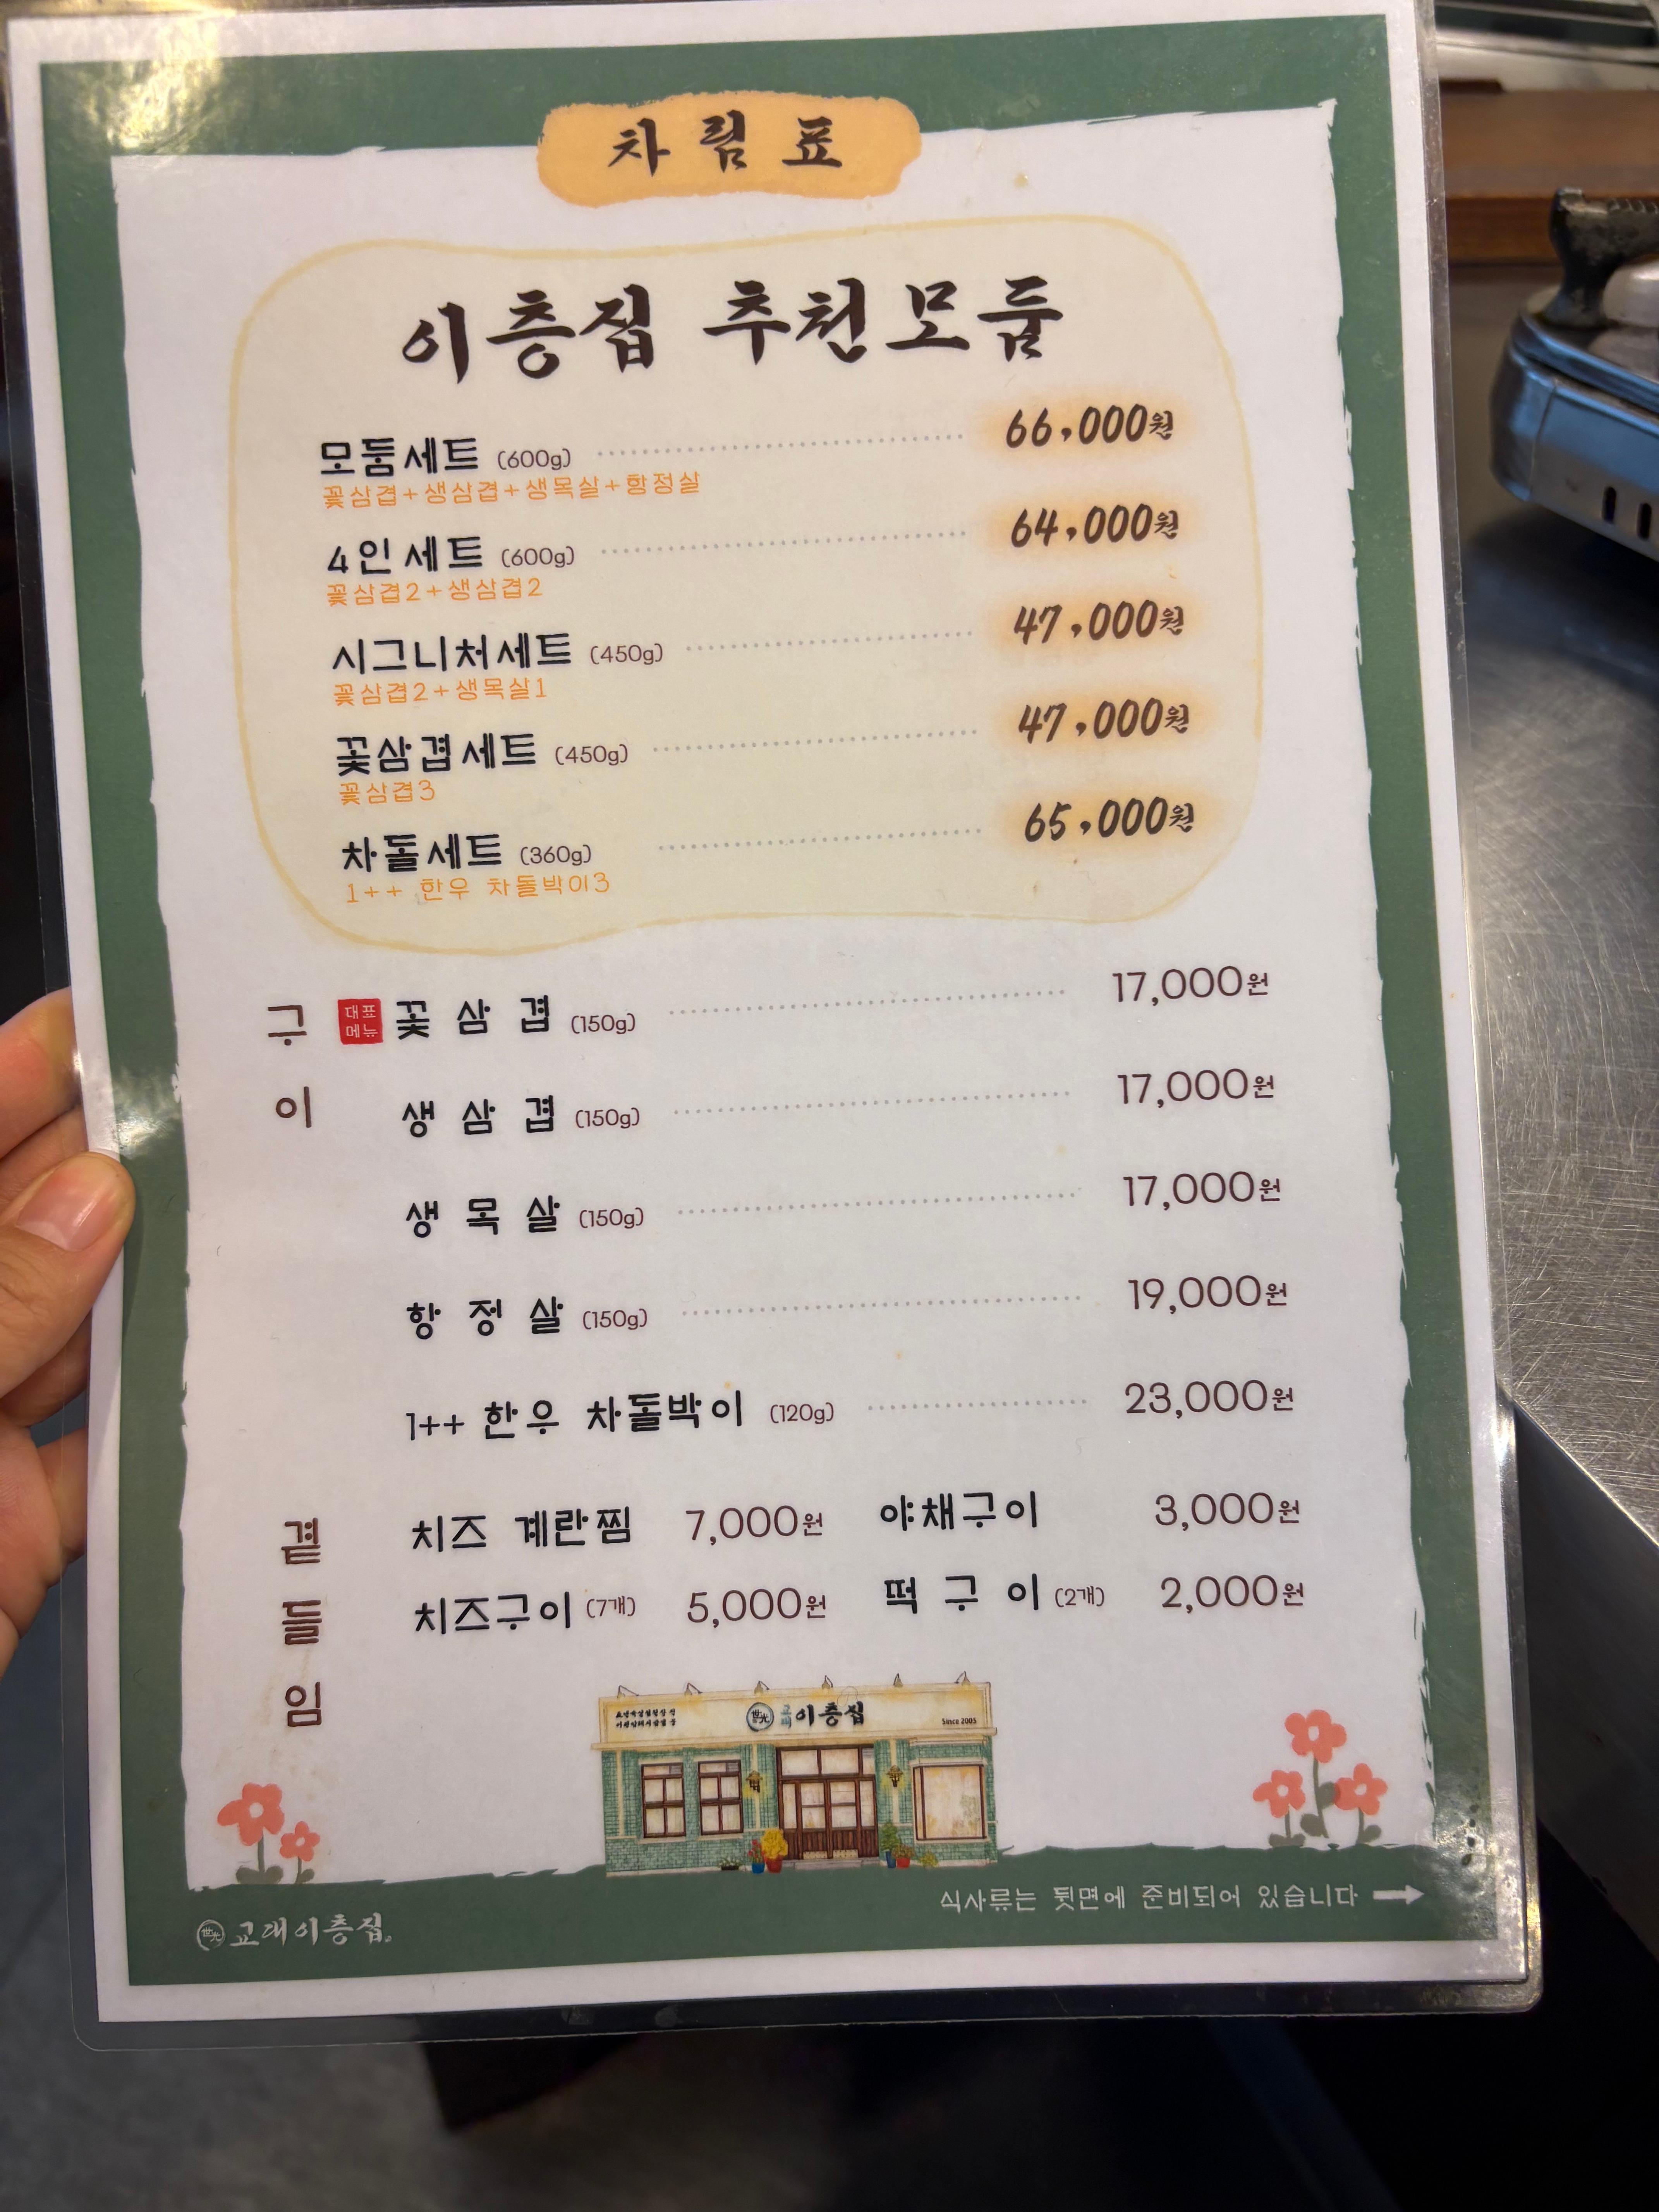 차림표
이층집 추천모둠
모둠세트 (600g) 66,000원
꽃삼겹+생삼겹+생목살+항정살
4인세트 (600g) 64,000원
꽃삼겹2+생삼겹2
시그니처세트 (450g) 47,000원
꽃삼겹2+생목살1
꽃삼겹세트 (450g) 47,000원
꽃삼겹3
차돌세트 (360g) 65,000원
1++ 한우 차돌박이3
구이
대표
메뉴
꽃삼겹 (150g) 17,000원
생삼겹 (150g) 17,000원
생목살 (150g) 17,000원
항정살 (150g) 19,000원
1++ 한우 차돌박이 (120g) 23,000원
곁들임
치즈 계란찜 7,000원 야채구이 3,000원
치즈구이 (7개) 5,000원 떡구이 (2개) 2,000원
世光 교대 이층집 Since 2005
식사류는 뒷면에 준비되어 있습니다
世光 교대이층집